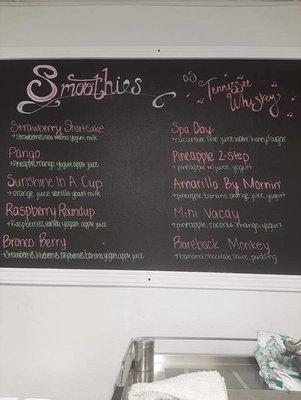 Smoothies
as Tennessee Whiskey
Strawberry Shortcake
+Strawberries, vanilla yogurt, milk
Pango
+Pineapple, mango, yogurt, apple juice
Sunshine In A Cup
+orange juice, vanilla yogurt, milk
Raspberry Roundup
+Raspberries, vanilla yogurt, apple juice
Bronco Berry
+Strawberries, blueberries, raspberries, banana, yogurt, apple juice
Spa Day
+cucumber, lime juice, water, honey/sugar
Pineapple 2-Step
+pineapple, juice, yogurt
Amarillo By Mornin'
+pineapple, banana, orange juice, yogurt
Mini Vacay
+pineapple, coconut, mango, yogurt
Bareback Monkey
+banana, chocolate sauce, pudding